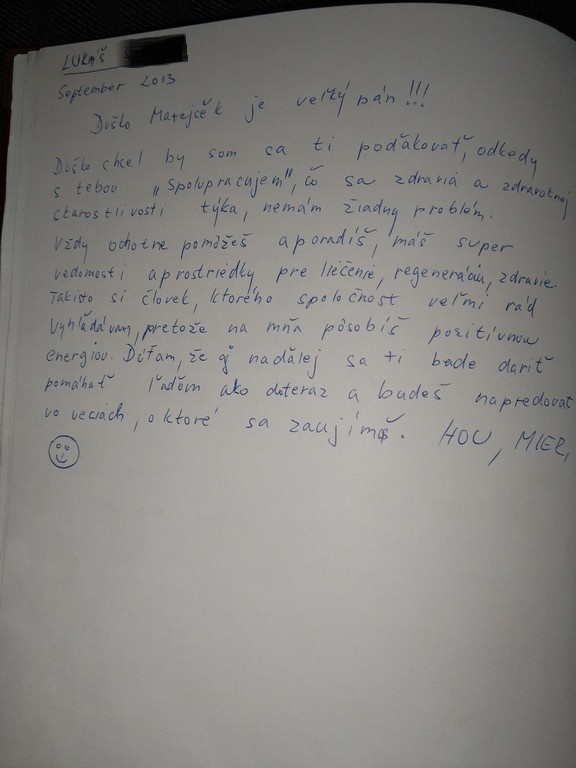 LUKáš
September 2013
Duško Matejsek je veľký pán!!!
Duško chcel by som sa ti poďakovať, odkedy
s tebou "spolupracujem", čo sa zdravia a zdravotnej
starostlivosti týka, nemám žiadny problém.
Vždy ochotne pomôžeš a poradíš, máš super
vedomosti a prostriedky pre liečenie, regeneráciu, zdravie.
Takisto si človek, ktorého spoločnosť veľmi rád
vyhľadávam, pretože na mňa pôsobíš pozitívnou
energiou. Dúfam, že aj naďalej sa ti bude dariť
pomáhať ľuďom ako doteraz a budeš napredovať
vo veciach, o ktoré sa zaujímaš. HOU, MIER,